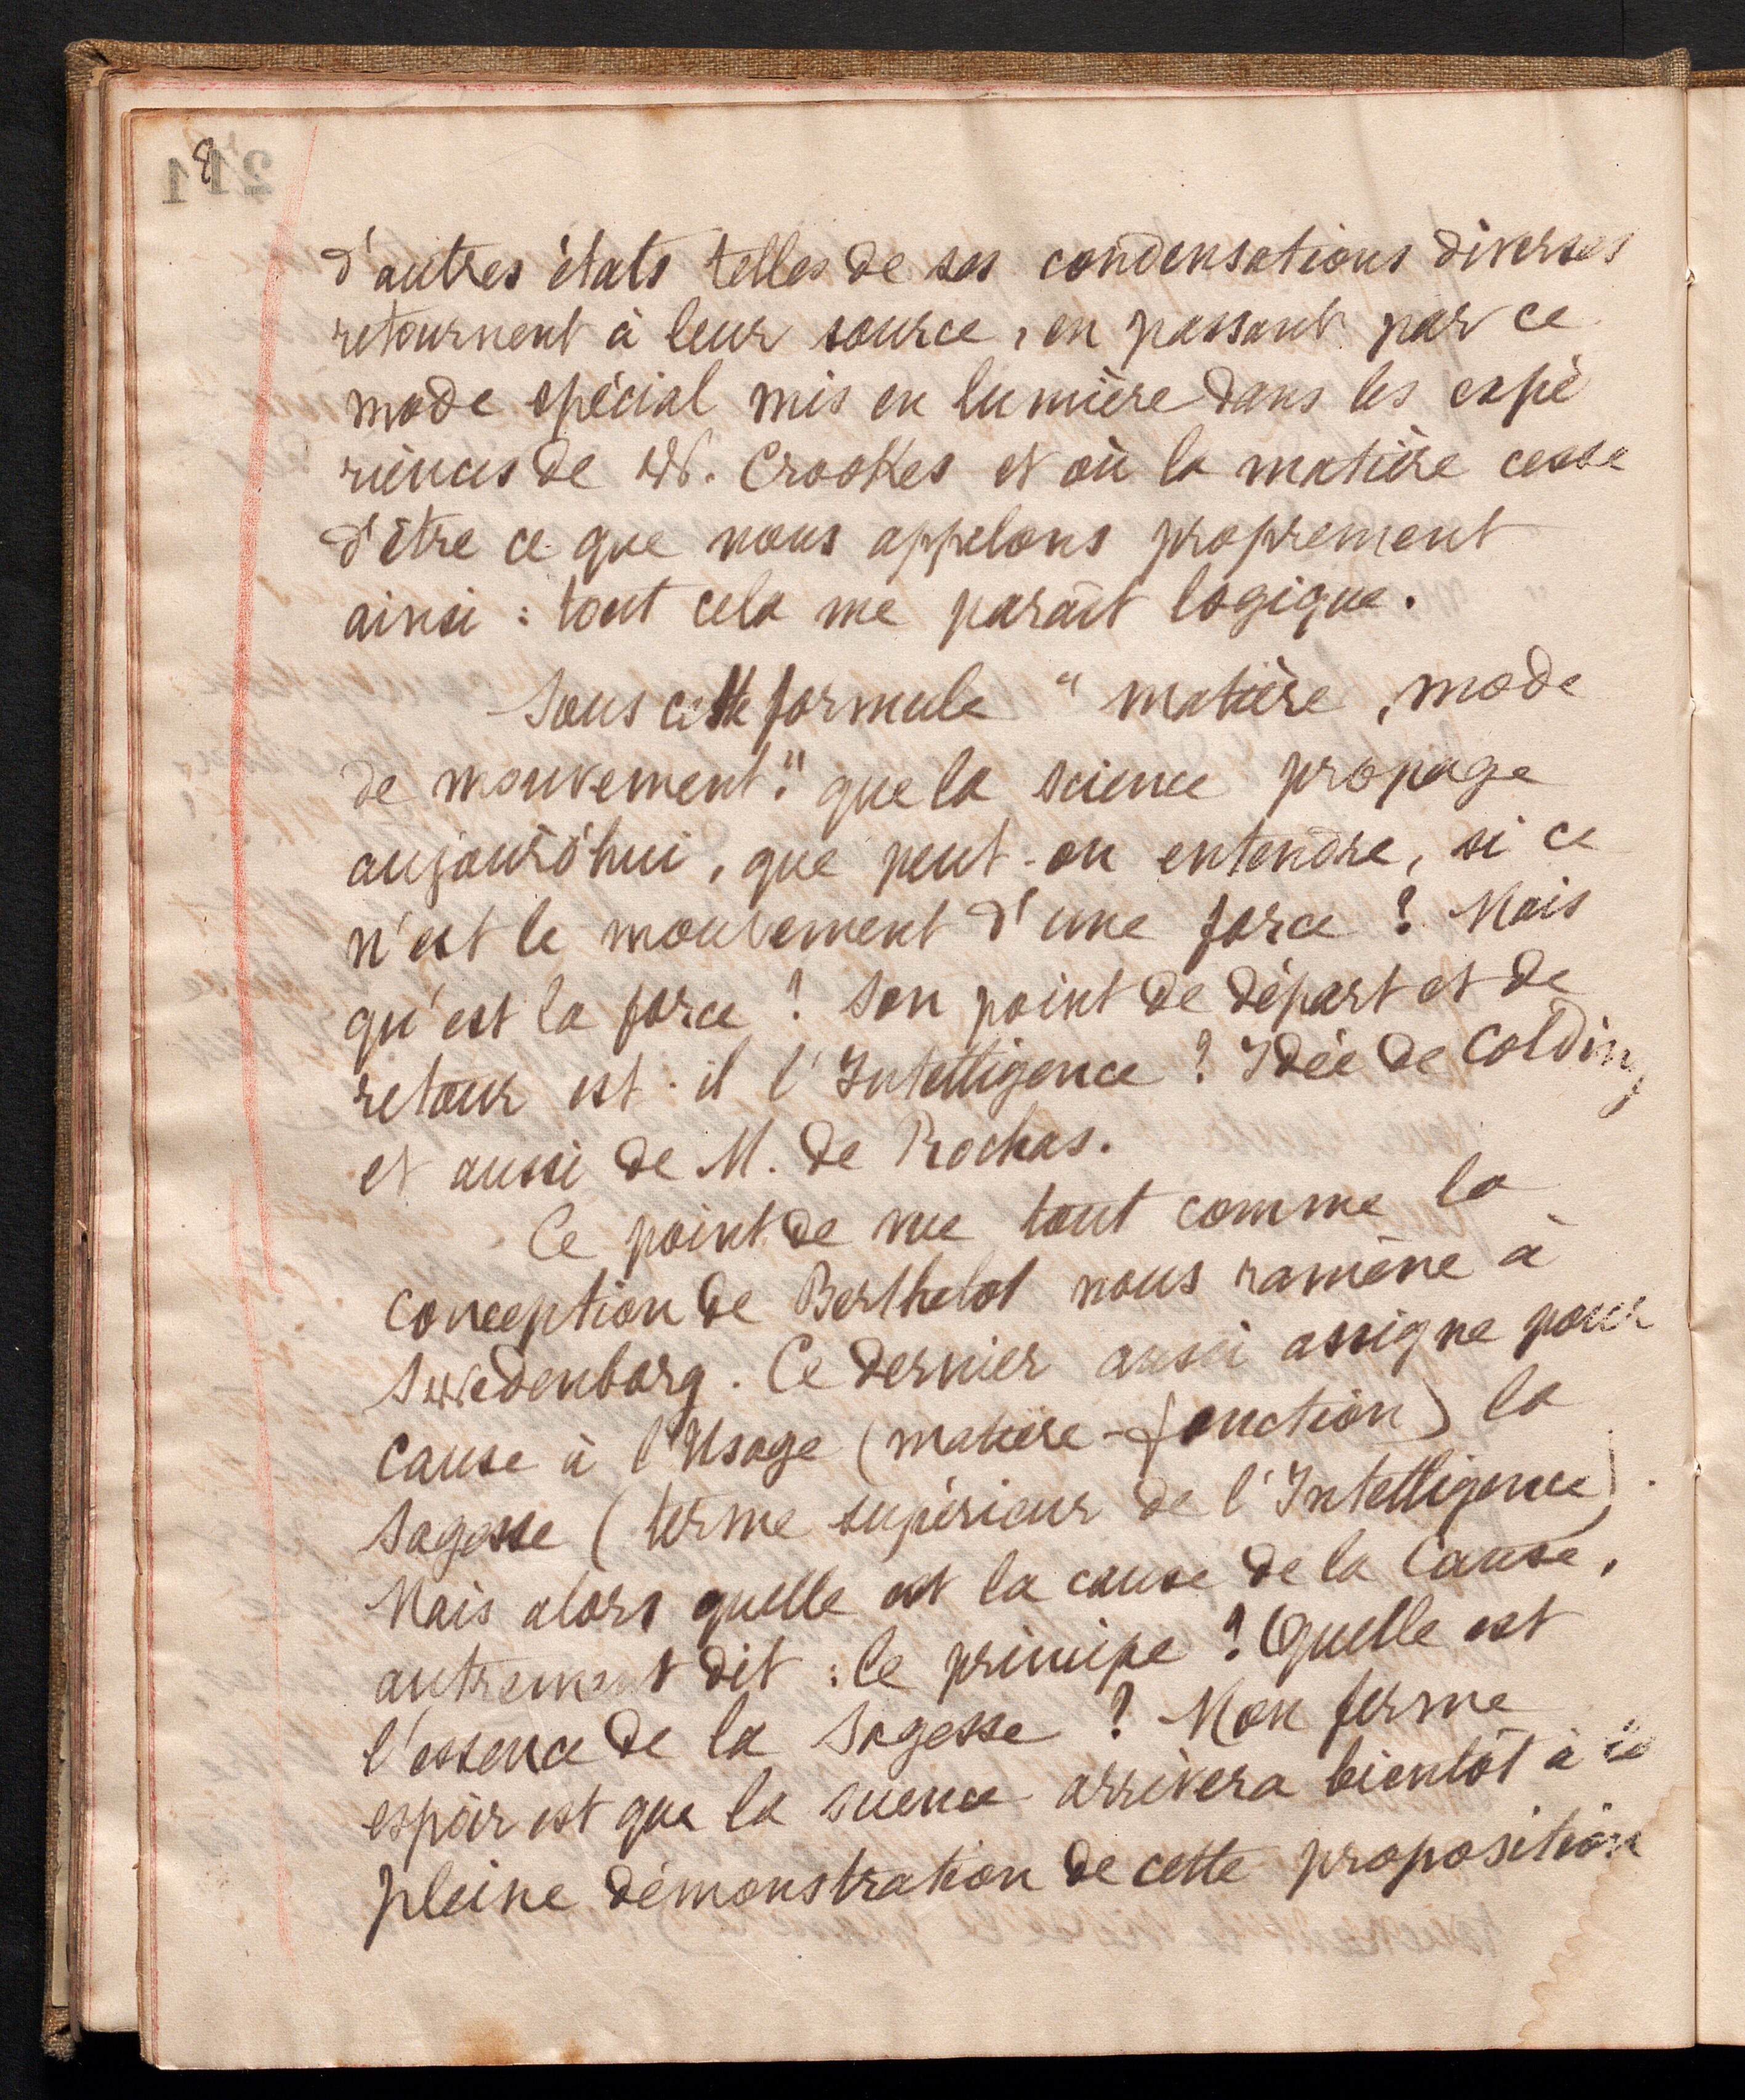 8
d'autres états telles de ses condensations diverses
retournent à leur source, en passant par ce
mode spécial mis en lumière dans les expé
riences de W. Crookes et où la matière cesse
d'être ce que nous appelons proprement
ainsi : tout cela me parait logique.
Sous cette formule "matière, mode
de mouvement." que la science propage
aujourd'hui, que peut-on entendre, si ce
n'est le mouvement d'une force ? Mais
qu'est la force ? Son point de départ et de
retour est-il l'Intelligence ? Idée de Colding
et aussi de M. de Rochas.
Ce point de vue tout comme la
conception de Berthelot nous ramène à
Swedenborg. Ce dernier aussi assigne pour
cause à l'Usage (matière-fonction) la
Sagesse (terme supérieur de l'Intelligence).
Mais alors quelle est la cause de la Cause,
autrement dit : le principe ? Quelle est
l'essence de la Sagesse ? Mon ferme
espoir est que la science arrivera bientôt à la
pleine démonstration de cette proposition